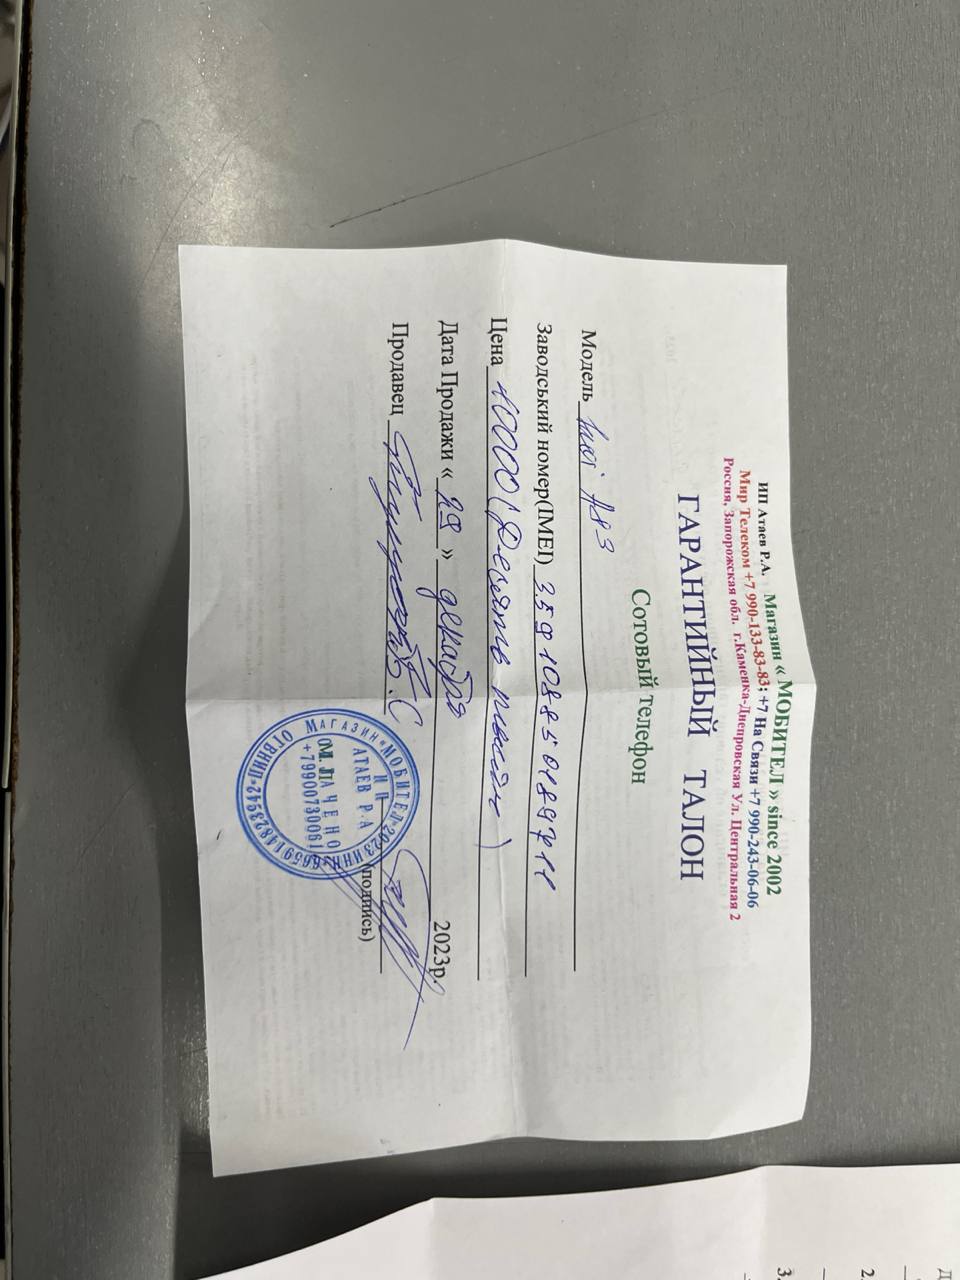 Магазин « МОБИТЕЛ » since 2002
ИП Атаев Р.А.
Мир Телеком +7 990-133-83-83; +7 На Связи +7 990-243-06-06
Россия, Запорожская обл. г.Каменка-Днепровская Ул. Центральная 2
ГАРАНТИЙНЫЙ ТАЛОН
Сотовый телефон
Модель inoi A83
Заводський номер(IMEI) 359108850189711
Цена 10000 (Десять тысяч)
Дата Продажи « 29 » декабря 2023р.
Продавец
(подпись)
МАГАЗИН«МОБИТЕЛ»2023 ИНН
ИП
АТАЕВ Р.А
+79900730061
Д
2.
3.